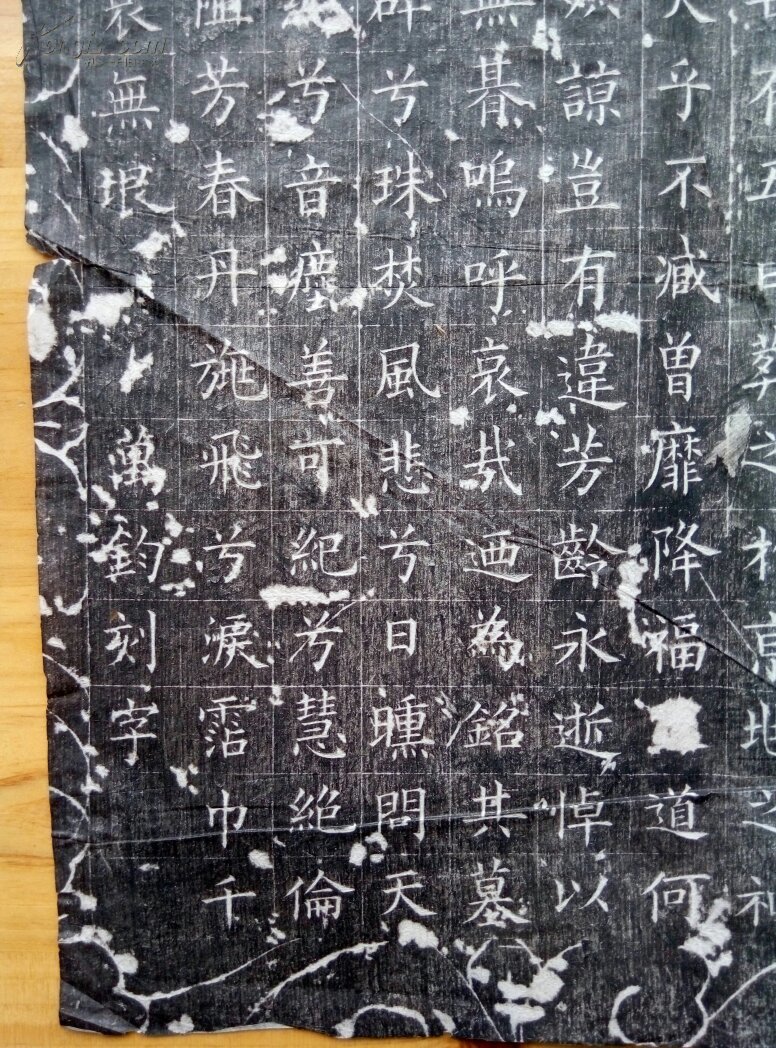 有五日葬之
乎不臧曾靡降福道何
諒豈有違芳齡永逝悼以
無朞嗚呼哀哉迺為銘其墓
兮珠焚風悲兮日曛問天
兮音塵善可紀兮慧絕倫
芳春丹旐飛兮淚霑巾千
哀無垠　萬鈞刻字